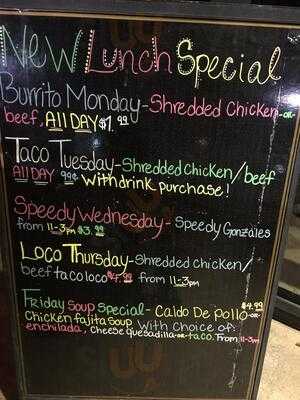 New Lunch Special
Burrito Monday-Shredded Chicken-or-
beef, All DAY $1.99
Taco Tuesday-Shredded chicken/beef
All DAY 99¢ with drink purchase!
Speedy Wednesday- Speedy Gonzales
from 11-3pm $3.99
Loco Thursday-Shredded chicken/
beef taco loco $4.99 from 11-3pm
Friday Soup Special- Caldo De Pollo-or- $4.99
Chicken fajita soup With Choice of:
enchilada, Cheese quesadilla-or-taco. From 11-3pm